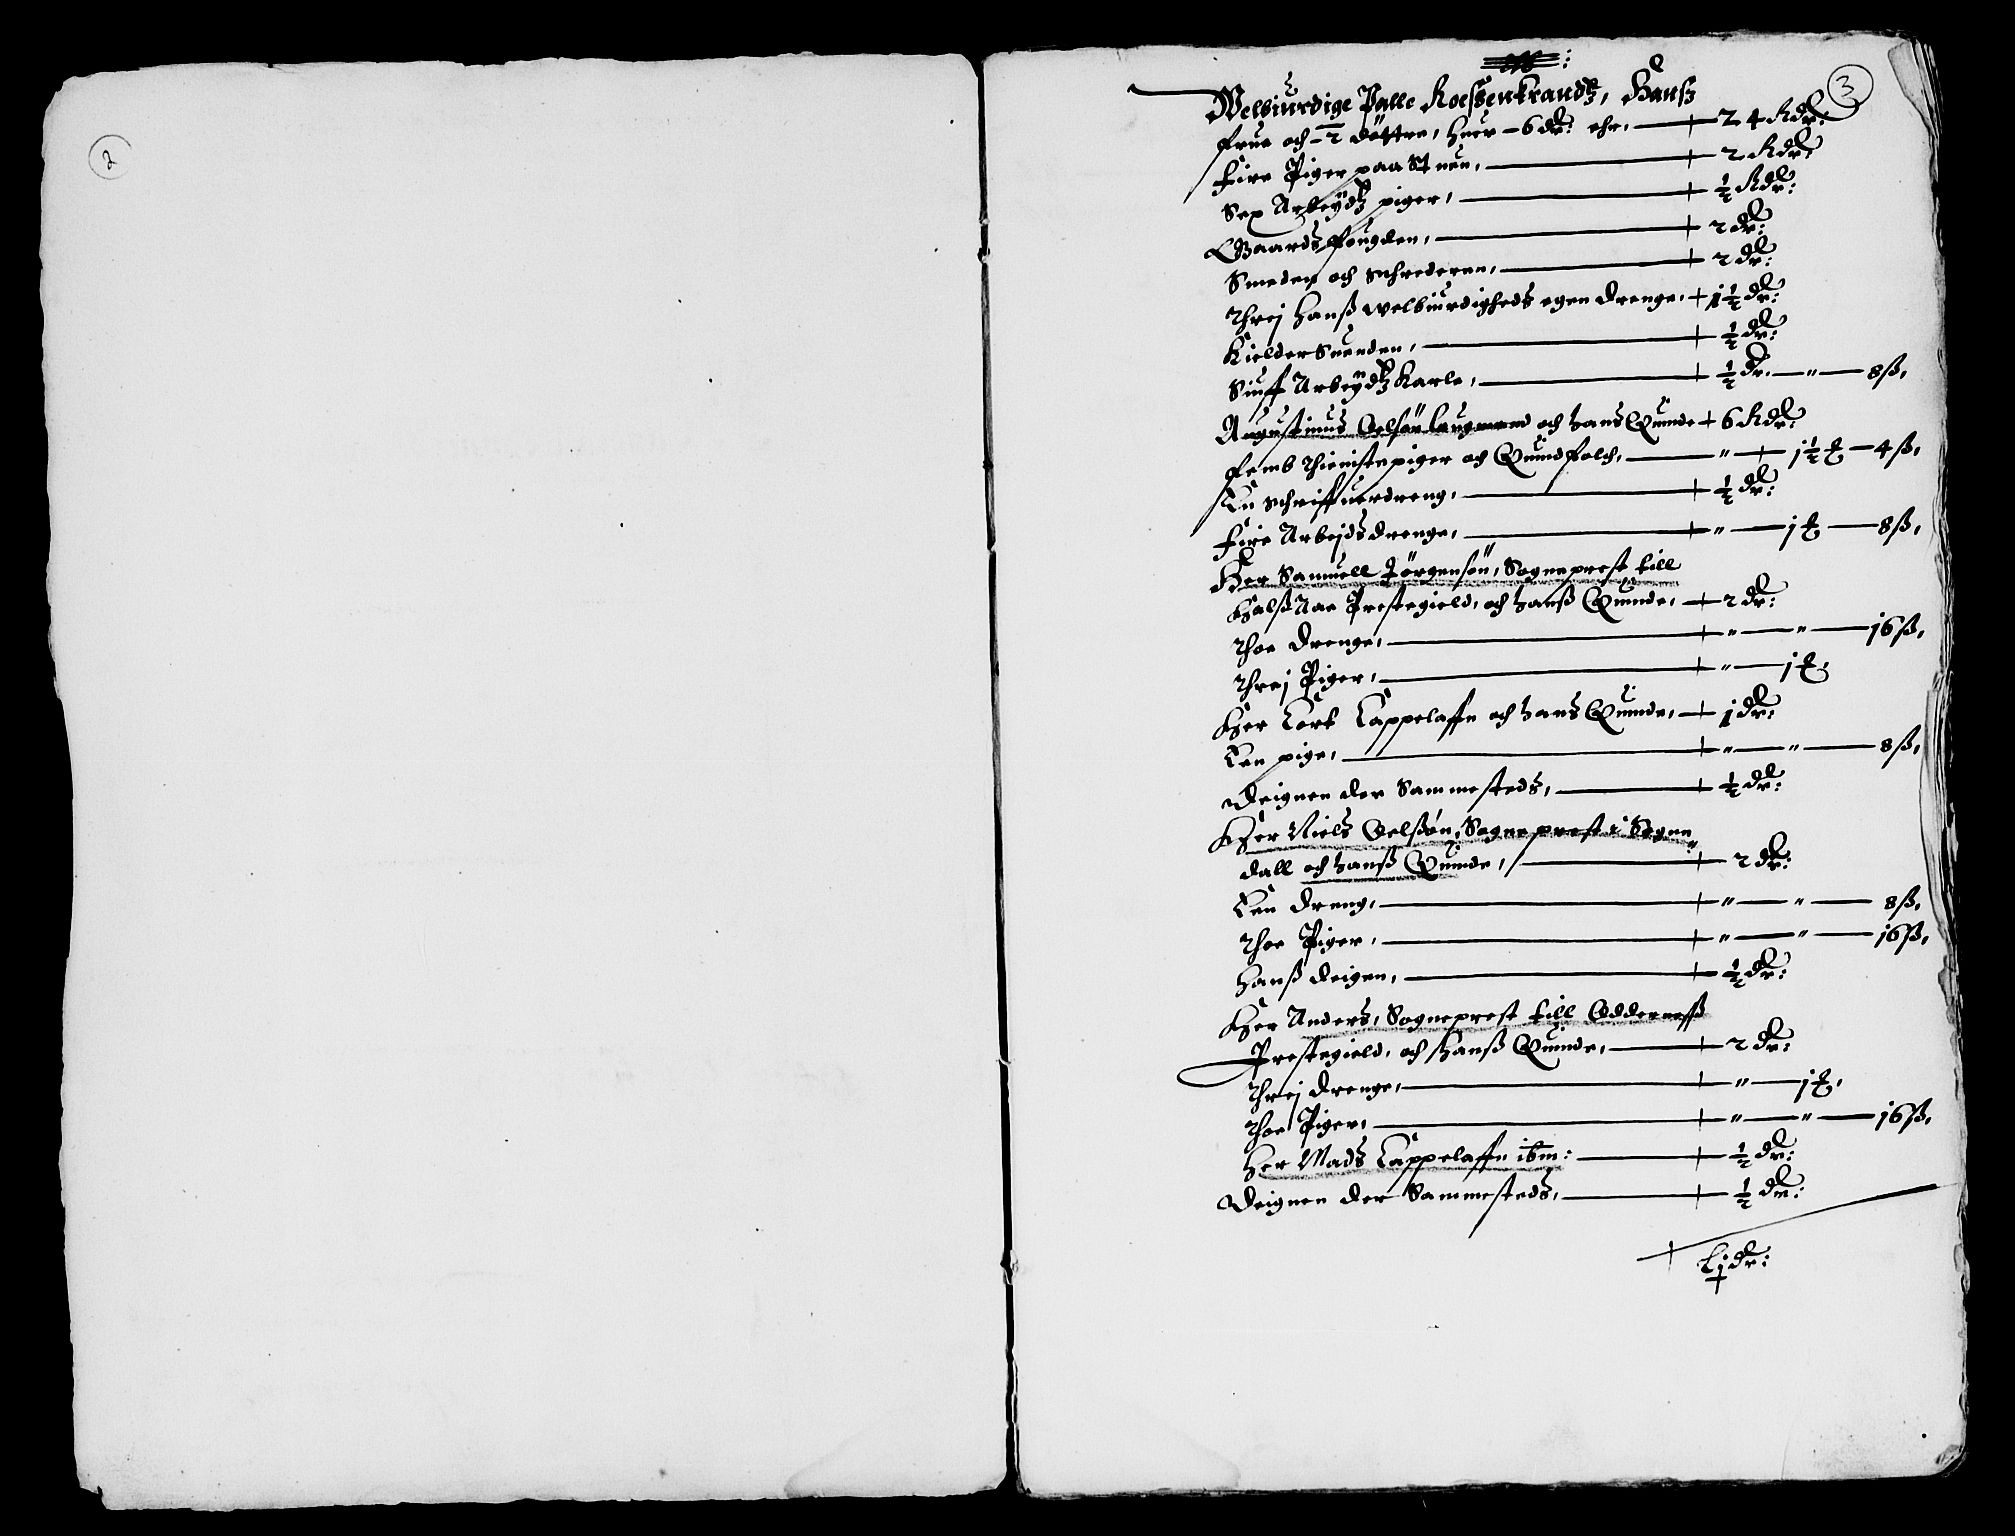 2
3
Welbiurdige Palle Roessenkrandtz, Hans
frue och - 2 döttre, huer - 6 dr: ehr, — 24 Rdr:
Fire Piger paa Stuen, — 2 Rdr:
Sex Arbeydtz piger, — ½ Rdr:
Gaardsfougden, — 2 dr:
Smeden och schrederen, — 2 dr:
Threj Hanss welbiurdigheds egen drenge, 1½ dr:
Kielder Suenden, — ½ dr:
Siuff Arbeydtz Karle, — ½ dr. — " — 8 ß,
Augustinus Oelsön laugmand och hans Quinde 6 Rdr:
Femb thienistepiger och Quindfolch, — " — 1½ — 4 ß,
En schriffuerdreng, — ½ dr:
Fire Arbejdsdrenge, — " — 1 — 8 ß,
Her Samuell Jörgensön, Sogneprest till
Halss Aae Prestegield, och hanss Quinde, — 2 dr:
Thoe drenge, — " — " — 16 ß,
Threj Piger, — " — 1
Her Cort Cappelaffn och hans Quinde, — 1 dr:
Een pige, — " — " — 8 ß,
Deignen der Sammesteds, — ½ dr:
Her Niels Oelssön, Sogneprest i Sogne
dall och hanss Quinde, — 2 dr:
Een dreng, — " — " — 8 ß,
Thoe Piger, — " — " — 16 ß,
Hanss deigen, — ½ dr:
Her Anders, Sogneprest till Odderness
Prestegield, och hanss Quinde, — 2 dr:
Threj drenge, — " — 1
Thoe Piger, — " — " — 16 ß,
Her Mads Cappelaffn ibm: — ½ dr:
Deignen der Sammesteds, — ½ dr:
Lj dr: